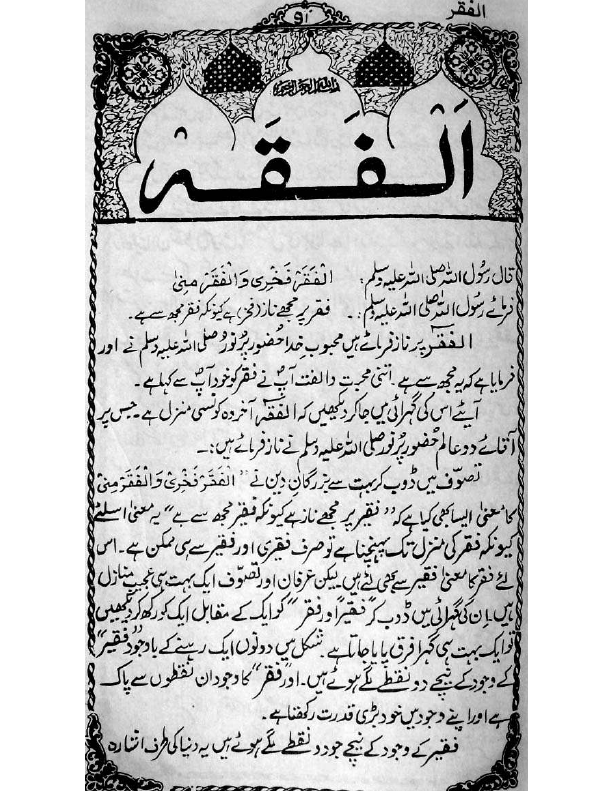 الفقر
بسم اللہ الرحمن الرحیم
اَلْفَقَر
قال رسول اللہ صلی اللہ علیہ وسلم: الفقر فخری والفقر منی
فرمائے رسول اللہ صلی اللہ علیہ وسلم:۔ فقر پر مجھے ناز (فخر) ہے کیونکہ فقر مجھ سے ہے۔
الفقر پر ناز فرمائے ہیں محبوبِ خدا حضور پُر نور صلی اللہ علیہ وسلم نے اور
فرمایا ہے کہ یہ مجھ سے ہے۔ اتنی محبت و الفت آپؐ نے فقر کو خود آپؐ سے کہا ہے۔
آیئے اس کی گہرائی میں جا کر دیکھیں کہ الفقر آخر وہ کونسی منزل ہے۔ جس پر
آقائے دو عالم حضور پُر نور صلی اللہ علیہ وسلم نے ناز فرمائے ہیں:۔
تصوّف میں ڈوب کر بہت سے بزرگانِ دین نے "الفقر فخری والفقر منی
کا معنیٰ ایسا بھی کیا ہے کہ "فقیر پر مجھے ناز ہے کیونکہ فقیر مجھ سے ہے" یہ معنیٰ اسلئے
کیونکہ فقر کی منزل تک پہنچنا ہے تو صرف فقیری اور فقیر سے ہی ممکن ہے۔ اس
لئے فقر کا معنیٰ فقیر سے بھی لئے ہیں لیکن عرفان اور تصوّف ایک بہت ہی عجیب منازل
ہیں۔ اِن کی گہرائی میں ڈوب کر "فقیر" اور فقر" کو ایک کے مقابل ایک کو رکھ کر دیکھیں
تو ایک بہت ہی گہرا فرق پایا جاتا ہے۔ شکل میں دونوں ایک رہنے کے باوجود "فقیر"
کے وجود کے نیچے دو نقطے لگے ہوئے ہیں۔ اور "فقر" کا وجود ان نقطوں سے پاک
ہے اور اپنے وجود میں خود بڑی قدرت رکھتا ہے۔
فقیر کے وجود کے نیچے جو دو نقطے لگے ہوئے ہیں یہ دنیا کی طرف اشارہ